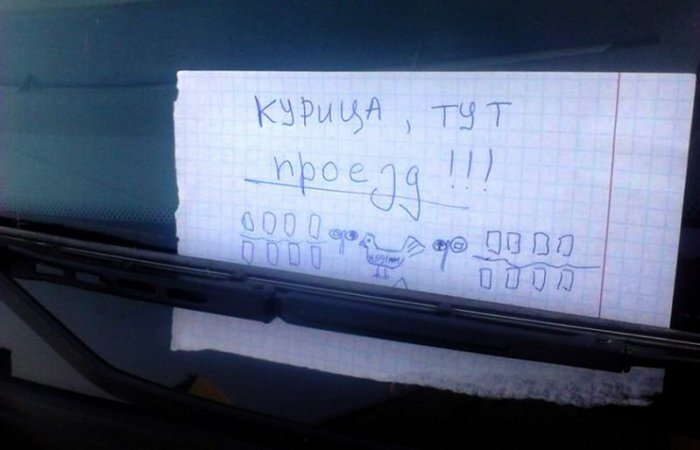 КУРИЦА, ТУТ
проезд!!!